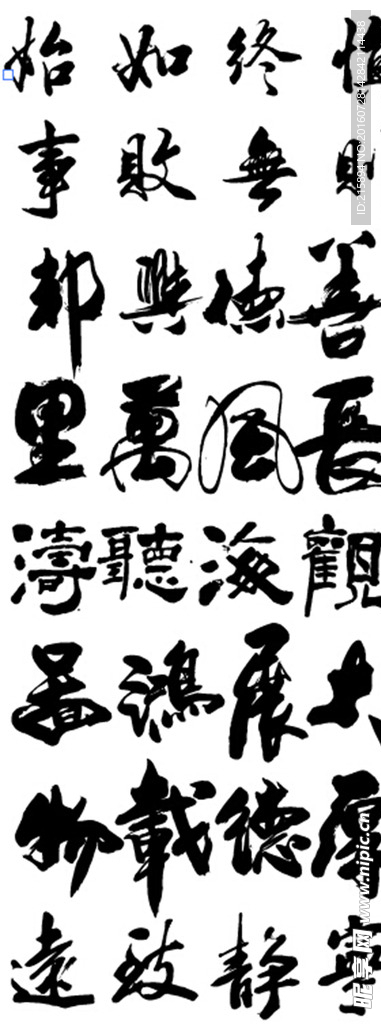 慎終如始
則無敗事
善德興邦
長風萬里
觀海聽濤
大展鴻圖
厚德載物
寧靜致遠
昵享网 www.nipic.cn